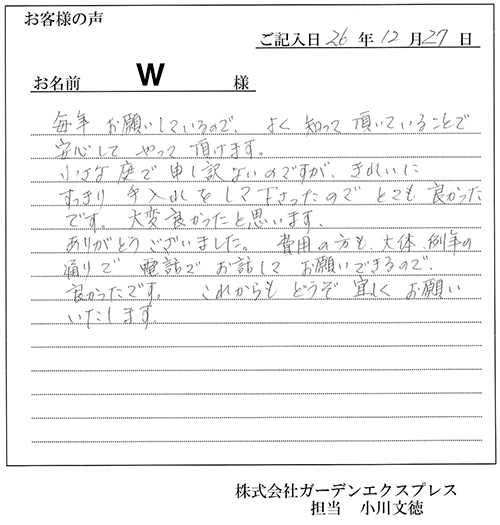 お客様の声
ご記入日 26 年 12 月 27 日
お名前 W 様
毎年 お願いしているので、よく 知って 頂いていることで
安心して やって 頂けます。
小さな 庭で 申し訳ないのですが、きれいに
すっきり 手入れをして下さったので とても 良かった
です。大変良かったと思います、
ありがとうございました。 費用の方も、大体、例年の
通りで 電話で お話して お願いできるので、
良かったです。 これからも どうぞ 宜しく お願い
いたします。
株式会社ガーデンエクスプレス
担当 小川文徳